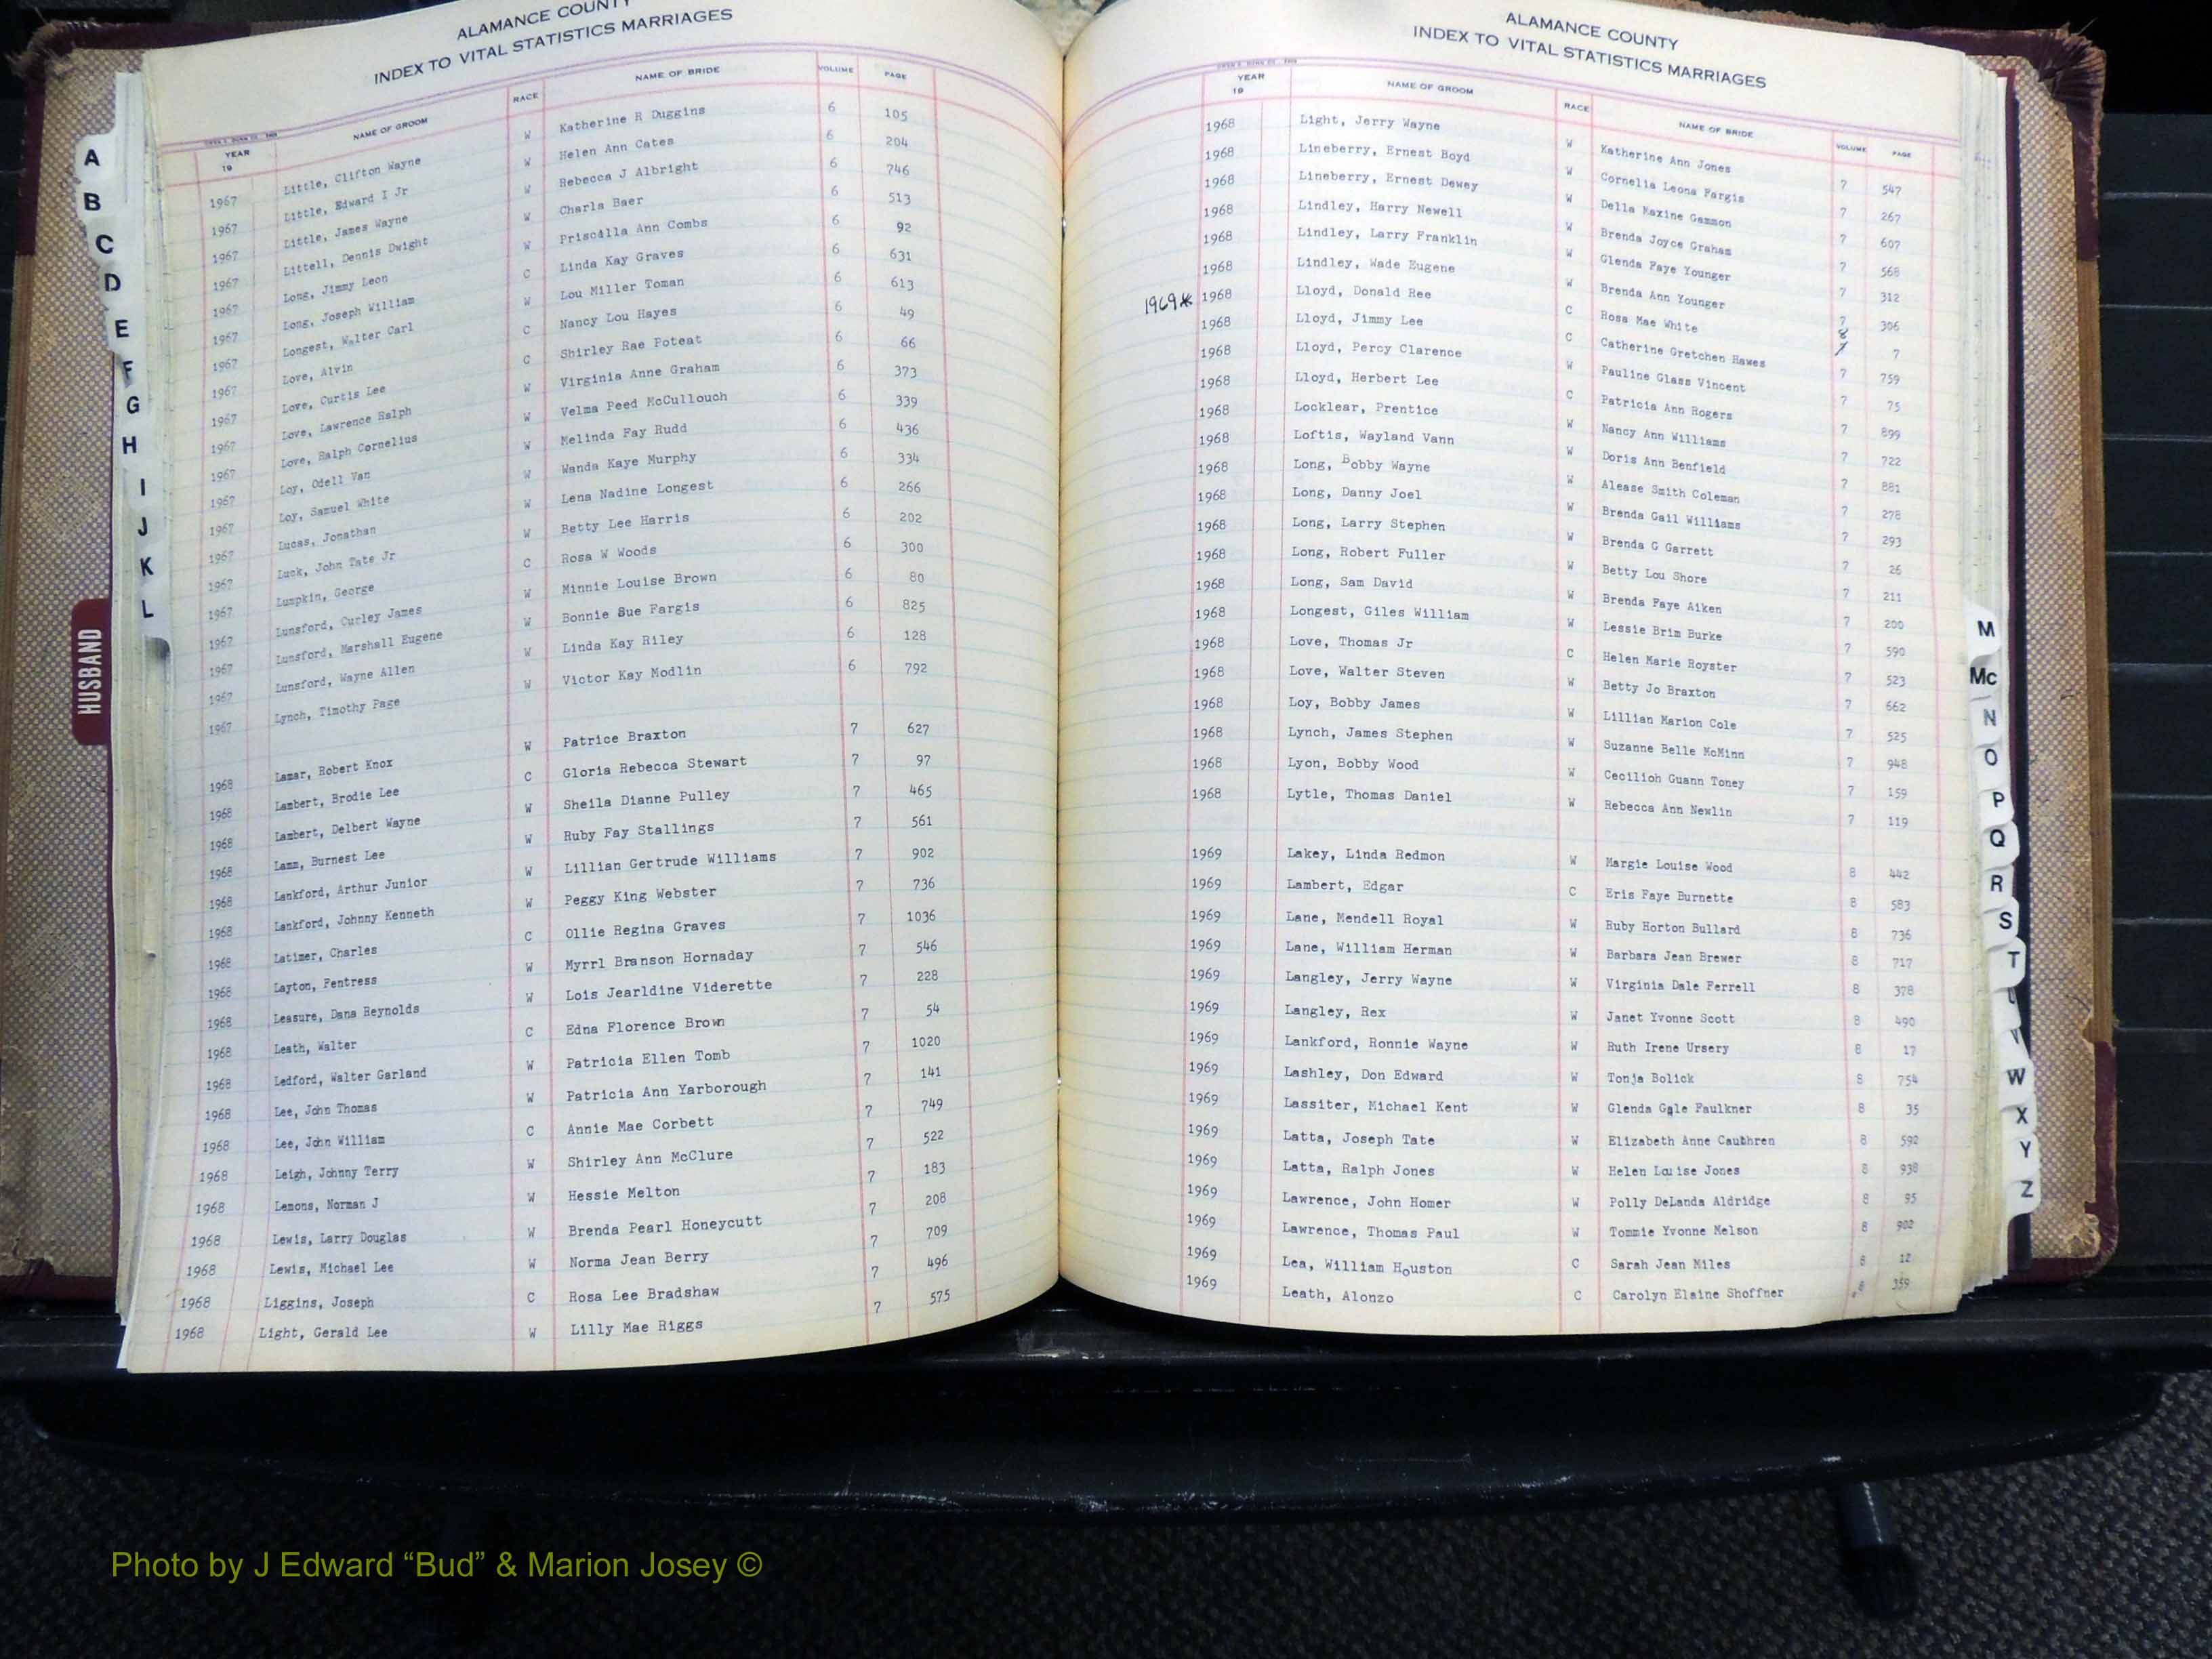 ALAMANCE COUNTY
INDEX TO VITAL STATISTICS MARRIAGES
YEAR 19 NAME OF GROOM RACE NAME OF BRIDE VOLUME PAGE
1967 Little, Clifton Wayne W Katherine R Duggins 6 105
1967 Little, Edward I Jr W Helen Ann Cates 6 204
1967 Little, James Wayne W Rebecca J Albright 6 746
1967 Littell, Dennis Dwight W Charla Baer 6 513
1967 Long, Jimmy Leon W Priscilla Ann Combs 6 92
1967 Long, Joseph William C Linda Kay Graves 6 631
1967 Longest, Walter Carl W Lou Miller Toman 6 613
1967 Love, Alvin C Nancy Lou Hayes 6 49
1967 Love, Curtis Lee C Shirley Rae Poteat 6 66
1967 Love, Lawrence Ralph W Virginia Anne Graham 6 373
1967 Love, Ralph Cornelius W Velma Peed McCullouch 6 339
1967 Loy, Odell Van W Melinda Fay Rudd 6 436
1967 Loy, Samuel White W Wanda Kaye Murphy 6 334
1967 Lucas, Jonathan W Lena Nadine Longest 6 266
1967 Luck, John Tate Jr W Betty Lee Harris 6 202
1967 Lumpkin, George C Rosa W Woods 6 300
1967 Lunsford, Curley James W Minnie Louise Brown 6 80
1967 Lunsford, Marshall Eugene W Bonnie Sue Fargis 6 825
1967 Lunsford, Wayne Allen W Linda Kay Riley 6 128
1967 Lynch, Timothy Page W Victor Kay Modlin 6 792
1968 Lamar, Robert Knox W Patrice Braxton 7 627
1968 Lambert, Brodie Lee C Gloria Rebecca Stewart 7 97
1968 Lambert, Delbert Wayne W Sheila Dianne Pulley 7 465
1968 Lamm, Burnest Lee W Ruby Fay Stallings 7 561
1968 Lankford, Arthur Junior W Lillian Gertrude Williams 7 902
1968 Lankford, Johnny Kenneth W Peggy King Webster 7 736
1968 Latimer, Charles C Ollie Regina Graves 7 1036
1968 Layton, Fentress W Myrrl Branson Hornaday 7 546
1968 Leasure, Dana Reynolds W Lois Jearldine Viderette 7 228
1968 Leath, Walter C Edna Florence Brown 7 54
1968 Ledford, Walter Garland W Patricia Ellen Tomb 7 1020
1968 Lee, John Thomas W Patricia Ann Yarborough 7 141
1968 Lee, John William C Annie Mae Corbett 7 749
1968 Leigh, Johnny Terry W Shirley Ann McClure 7 522
1968 Lemons, Norman J W Hessie Melton 7 183
1968 Lewis, Larry Douglas W Brenda Pearl Honeycutt 7 208
1968 Lewis, Michael Lee W Norma Jean Berry 7 709
1968 Liggins, Joseph C Rosa Lee Bradshaw 7 496
1968 Light, Gerald Lee W Lilly Mae Riggs 7 575
ALAMANCE COUNTY
INDEX TO VITAL STATISTICS MARRIAGES
YEAR 19 NAME OF GROOM RACE NAME OF BRIDE VOLUME PAGE
1968 Light, Jerry Wayne W Katherine Ann Jones 7 547
1968 Lineberry, Ernest Boyd W Cornelia Leona Fargis 7 267
1968 Lineberry, Ernest Dewey W Della Maxine Gammon 7 607
1968 Lindley, Harry Newell W Brenda Joyce Graham 7 568
1968 Lindley, Larry Franklin W Glenda Faye Younger 7 312
1968 Lindley, Wade Eugene W Brenda Ann Younger 7 306
1969* 1968 Lloyd, Donald Ree C Rosa Mae White 8 7 7
1968 Lloyd, Jimmy Lee C Catherine Gretchen Hawes 7 759
1968 Lloyd, Percy Clarence W Pauline Glass Vincent 7 75
1968 Lloyd, Herbert Lee C Patricia Ann Rogers 7 899
1968 Locklear, Prentice W Nancy Ann Williams 7 722
1968 Loftis, Wayland Vann W Doris Ann Benfield 7 881
1968 Long, Bobby Wayne W Alease Smith Coleman 7 278
1968 Long, Danny Joel W Brenda Gail Williams 7 293
1968 Long, Larry Stephen W Brenda G Garrett 7 26
1968 Long, Robert Fuller W Betty Lou Shore 7 211
1968 Long, Sam David W Brenda Faye Aiken 7 200
1968 Longest, Giles William W Lessie Brim Burke 7 590
1968 Love, Thomas Jr C Helen Marie Royster 7 523
1968 Love, Walter Steven W Betty Jo Braxton 7 662
1968 Loy, Bobby James W Lillian Marion Cole 7 525
1968 Lynch, James Stephen W Suzanne Belle McMinn 7 948
1968 Lyon, Bobby Wood W Cecilioh Guann Toney 7 159
1968 Lytle, Thomas Daniel W Rebecca Ann Newlin 7 119
1969 Lakey, Linda Redmon W Margie Louise Wood 8 442
1969 Lambert, Edgar C Eris Faye Burnette 8 583
1969 Lane, Mendell Royal W Ruby Horton Bullard 8 736
1969 Lane, William Herman W Barbara Jean Brewer 8 717
1969 Langley, Jerry Wayne W Virginia Dale Ferrell 8 378
1969 Langley, Rex W Janet Yvonne Scott 8 490
1969 Lankford, Ronnie Wayne W Ruth Irene Ursery 8 17
1969 Lashley, Don Edward W Tonja Bolick 8 754
1969 Lassiter, Michael Kent W Glenda Gale Faulkner 8 35
1969 Latta, Joseph Tate W Elizabeth Anne Cauthren 8 592
1969 Latta, Ralph Jones W Helen Louise Jones 8 938
1969 Lawrence, John Homer W Polly DeLanda Aldridge 8 95
1969 Lawrence, Thomas Paul W Tommie Yvonne Melson 8 902
1969 Lea, William Houston C Sarah Jean Miles 8 12
1969 Leath, Alonzo C Carolyn Elaine Shoffner 8 359
A
B
C
D
E
F
G
H
I
J
K
L
HUSBAND
M
Mc
N
O
P
Q
R
S
T
U
W
X
Y
Z
Photo by J Edward “Bud” & Marion Josey ©